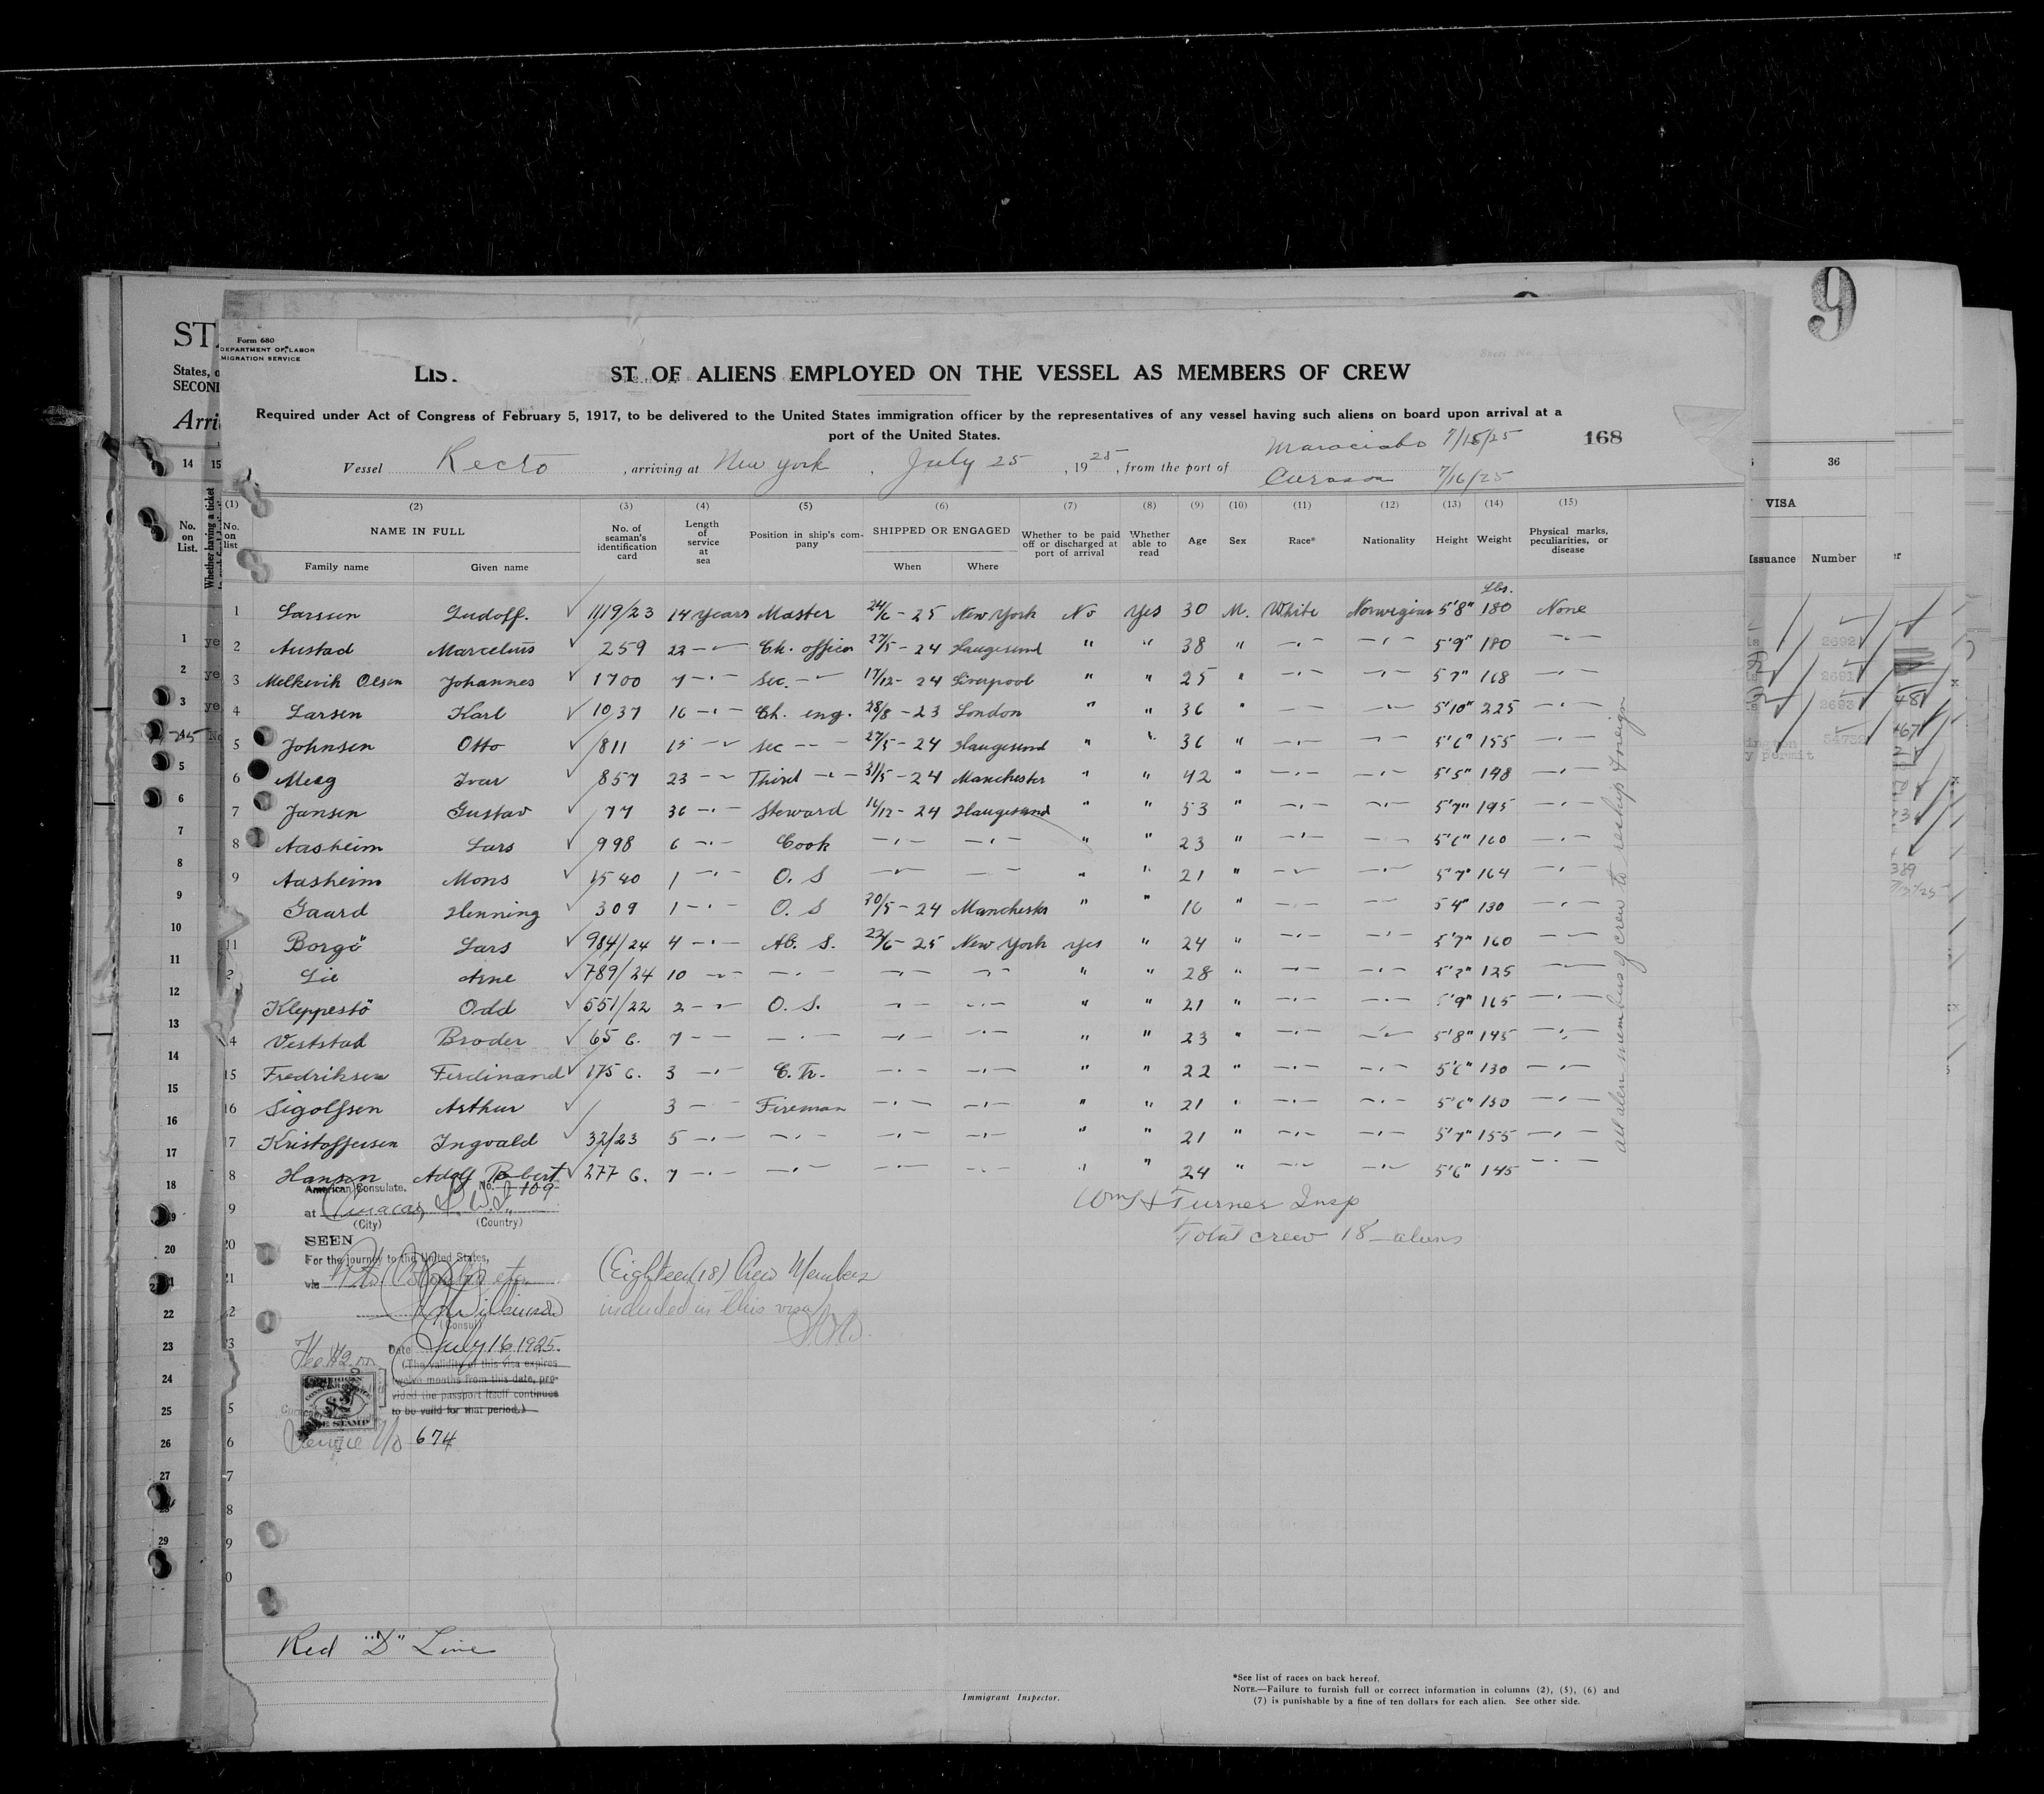 9
ST
States, o
SECONI
Arri
Form 680
DEPARTMENT OF LABOR
MIGRATION SERVICE
LIS. ST OF ALIENS EMPLOYED ON THE VESSEL AS MEMBERS OF CREW
Required under Act of Congress of February 5, 1917, to be delivered to the United States immigration officer by the representatives of any vessel having such aliens on board upon arrival at a
port of the United States.
168
Maraciabo 7/15/25
Vessel Recto , arriving at New York , July 25 , 1925 , from the port of
Curasao 7/16/25
(1) (2) (3) (4) (5) (6) (7) (8) (9) (10) (11) (12) (13) (14) (15)
No. on list
NAME IN FULL
Family name Given name
No. of seaman's identification card
Length of service at sea
Position in ship's company
SHIPPED OR ENGAGED
When Where
Whether to be paid off or discharged at port of arrival
Whether able to read
Age Sex Race* Nationality Height Weight
Physical marks, peculiarities, or disease
Lbs.
1 Larsen Ludoff. 1119/23 14 years Master 24/6 - 25 New York No Yes 30 M. White Norwegian 5'8" 180 None
2 Austad Marcelius 259 22 -"- Ch. officer 27/5 - 24 Haugesund " " 38 " -"- -"- 5'9" 180 -"-
3 Melkevik Olsen Johannes 1700 7 -"- Sec. -"- 17/12 - 24 Liverpool " " 25 " -"- -"- 5'7" 168 -"-
4 Larsen Karl 1037 16 -"- Ch. eng. 28/8 - 23 London " " 36 " -"- -"- 5'10" 225 -"-
5 Johnsen Otto 811 15 -"- Sec -"- 27/5 - 24 Haugesund " " 36 " -"- -"- 5'6" 155 -"-
6 Meag Ivar 857 23 -"- Third -"- 31/5 - 24 Manchester " " 42 " -"- -"- 5'5" 198 -"-
7 Jansen Gustav 77 36 -"- Steward 16/12 - 24 Haugesund " " 53 " -"- -"- 5'7" 195 -"-
8 Aasheim Lars 998 6 -"- Cook -"- -"- " " 23 " -"- -"- 5'6" 160 -"-
9 Aasheim Mons 1540 1 -"- O. S -"- -"- " " 21 " -"- -"- 5'7" 164 -"-
Gaard Henning 309 1 -"- O. S 30/5 - 24 Manchester " " 16 " -"- -"- 5'4" 130 -"-
11 Borgö Lars 984/24 4 -"- Ab. S. 23/6 - 25 New York Yes " 24 " -"- -"- 5'7" 160 -"-
2 Lie Arne 789/24 10 -"- -"- -"- -"- " " 28 " -"- -"- 5'2" 125 -"-
Kleppestö Odd 551/22 2 -"- O. S. -"- -"- " " 21 " -"- -"- 5'9" 165 -"-
4 Veststad Broder 65 6. 7 -"- -"- -"- -"- " " 23 " -"- 5'8" 145 -"-
15 Fredriksen Ferdinand 175 6. 3 -"- C. Tr. -"- -"- " " 22 " -"- -"- 5'6" 130 -"-
16 Sigolfsen Arthur 3 -"- Fireman -"- -"- " " 21 " -"- -"- 5'6" 150 -"-
17 Kristoffersen Ingvald 32/23 5 -"- -"- -"- -"- " " 21 " -"- -"- 5'7" 155 -"-
8 Hansen Adolf Robert 277 6. 7 -"- -"- -"- -"- " " 24 " -"- -"- 5'6" 145 -"-
all alien members of crew to reship foreign
American Consulate. No. 109
at Curacao, D. W. I.
(City) (Country)
SEEN
For the journey to the United States,
via
(Consul)
Date July 16 1925.
(The validity of this visa expires
twelve months from this date, pro-
vided the passport itself continues
to be valid for that period.)
Fee $2.00
Service No 674
Wm H Turner Insp
Total crew 18 aliens
(Eighteen (18) Crew Members
included in this visa)
Red "D" Line
Immigrant Inspector.
*See list of races on back hereof.
NOTE.—Failure to furnish full or correct information in columns (2), (5), (6) and
(7) is punishable by a fine of ten dollars for each alien. See other side.
36
VISA
Issuance Number